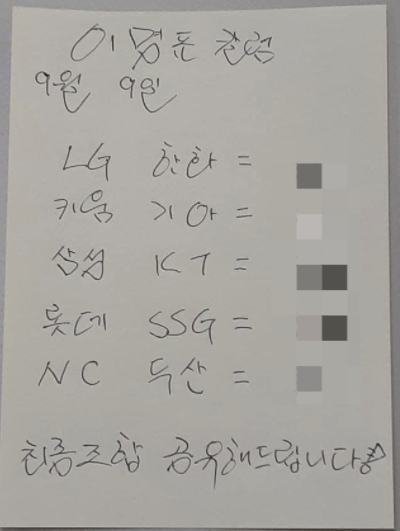 이명픈 칼럼
9월 9일
LG 한화 =
키움 기아 =
삼성 KT =
롯데 SSG =
NC 두산 =
최종조합 공유해드립니다